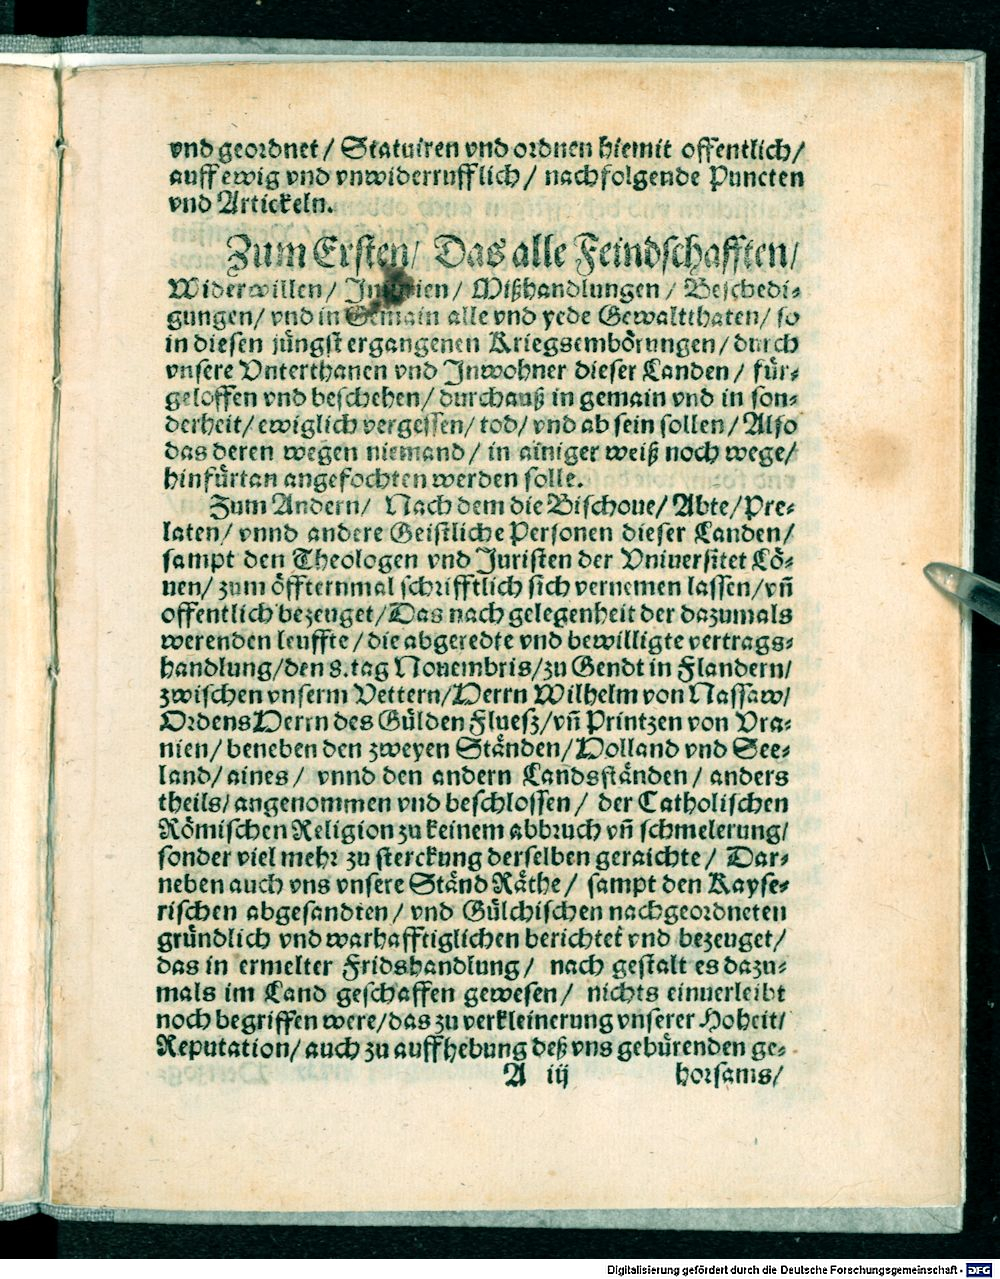 vnd geordnet / Statuiren vnd ordnen hiemit offentlich /
auff ewig vnd vnwiderrufflich / nachfolgende Puncten
vnd Artickeln.
Zum Ersten / Das alle Feindschafften /
Widerwillen / Iniurien / Mißhandlungen / Beschedi-
gungen / vnd in Gemain alle vnd yede Gewaltthaten / so
in diesen jüngst ergangenen Kriegsembörungen / durch
vnsere Vnterthanen vnd Inwohner dieser Landen / für-
geloffen vnd beschehen / durchauß in gemain vnd in son-
derheit / ewiglich vergessen / tod / vnd ab sein sollen / Also
das deren wegen niemand / in ainiger weiß noch wege /
hinfürtan angefochten werden solle.
Zum Andern / Nach dem die Bischoue / Abte / Pre-
laten / vnnd andere Geistliche Personen dieser Landen /
sampt den Theologen vnd Juristen der Vniuersitet Lö-
uen / zum öffternmal schrifftlich sich vernemen lassen / vñ
offentlich bezeuget / Das nach gelegenheit der dazumals
werenden leuffte / die abgeredte vnd bewilligte vertrags-
handlung / den 8. tag Nouembris / zu Gendt in Flandern /
zwischen vnserm Vettern / Herrn Wilhelm von Nassaw /
Ordens Herrn des Gülden Flueß / vñ Printzen von Vra-
nien / beneben den zweyen Ständen / Holland vnd See-
land / aines / vnnd den andern Landsständen / anders
theils / angenommen vnd beschlossen / der Catholischen
Römischen Religion zu keinem abbruch vñ schmelerung /
sonder viel mehr zu sterckung derselben geraichte / Dar-
neben auch vns vnsere Ständ Räthe / sampt den Kayse-
rischen abgesandten / vnd Gülchischen nachgeordneten
gründlich vnd warhafftiglichen berichtet vnd bezeuget /
das in ermelter Fridshandlung / nach gestalt es dazu-
mals im Land geschaffen gewesen / nichts einuerleibt
noch begriffen were / das zu verkleinerung vnserer Hoheit /
Reputation / auch zu auffhebung deß vns gebürenden ge-
A iij horsams /
Digitalisierung gefördert durch die Deutsche Forschungsgemeinschaft - DFG